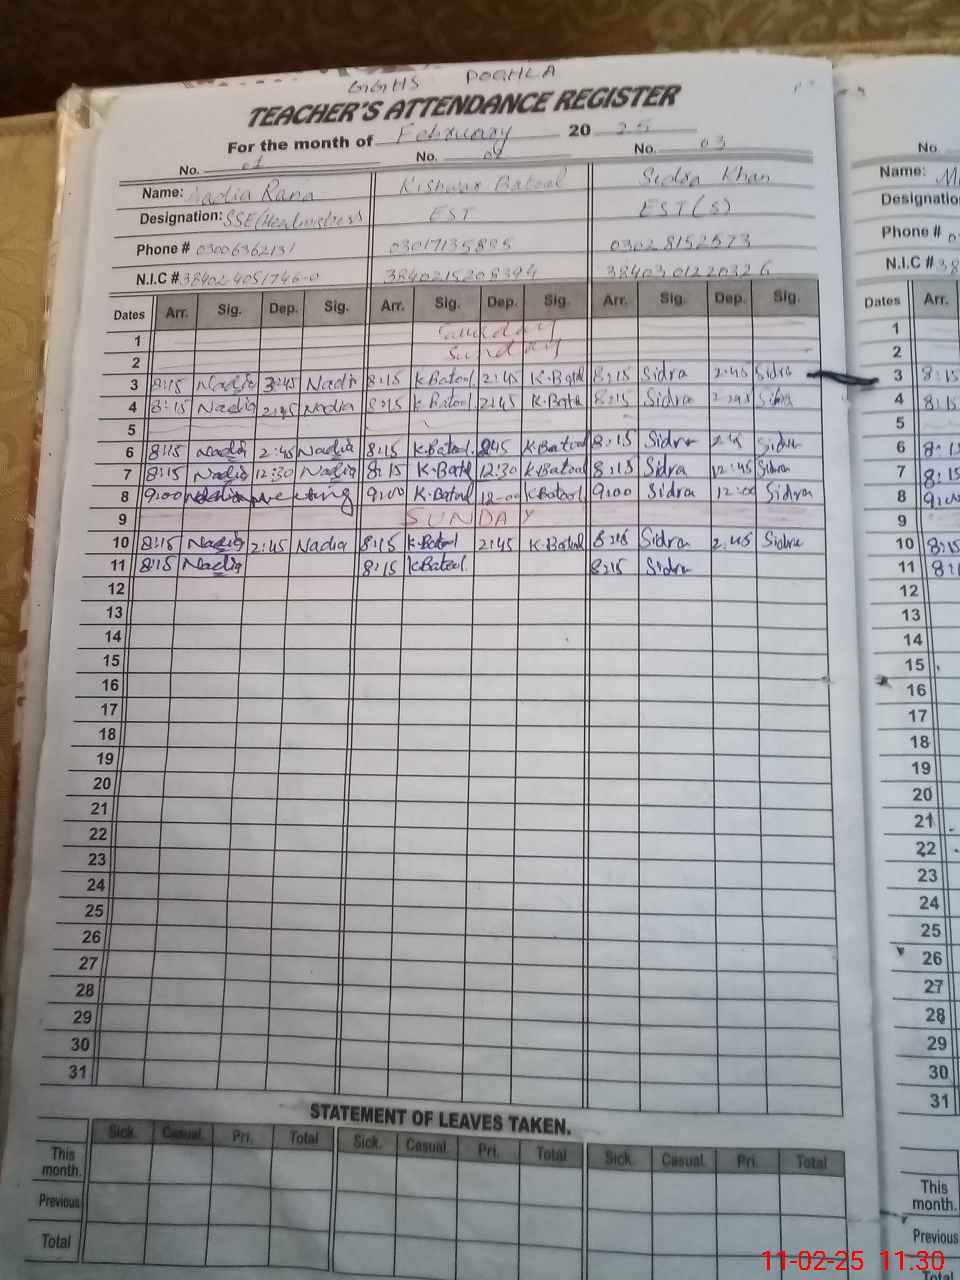 GGHS DOGHLA
TEACHER'S ATTENDANCE REGISTER
For the month of February 20 25
No. 01 No. 02 No. 03
Name: Nadia Rana Kishwar Batool Sidra Khan
Designation: SSE (Headmistress EST EST (S)
Phone # 03006362131 03017135895 03028152573
N.I.C # 3840215208394 3840301220326
Dates Arr. Sig. Dep. Sig. Arr. Sig. Dep. Sig. Arr. Sig. Dep. Sig.
1 Saturday
2 Sunday
3 8:15 Nadia 2:45 Nadia 8:15 K.Batool 2:45 K.Batool 8:15 Sidra 2:45 Sidra
4 8:15 Nadia 2:45 Nadia 8:15 K.Batool 2:45 K.Batool 8:15 Sidra 2:45 Sidra
5
6 8:15 Nadia 2:45 Nadia 8:15 K.Batool 2:45 K.Batool 8:15 Sidra 2:45 Sidra
7 8:15 Nadia 12:30 Nadia 8:15 K.Batool 12:30 K.Batool 8:15 Sidra 12:45 Sidra
8 9:00 meeting 9:00 K.Batool 12:00 K.Batool 9:00 Sidra 12:00 Sidra
9 SUNDAY
10 8:15 Nadia 2:45 Nadia 8:15 K.Batool 2:45 K.Batool 8:15 Sidra 2:45 Sidra
11 8:15 Nadia 8:15 K.Batool 8:15 Sidra
12
13
14
15
16
17
18
19
20
21
22
23
24
25
26
27
28
29
30
31
STATEMENT OF LEAVES TAKEN.
Sick. Casual. Pri. Total Sick. Casual. Pri. Total Sick. Casual. Pri. Total
This month.
Previous
Total
No.
Name: M
Designatio
Phone # 0
N.I.C # 38
Dates Arr.
1
2
3 8:15
4 8:15
5
6 8:1
7 8:15
8 9:00
9
10 8:15
11 8:1
12
13
14
15
16
17
18
19
20
21
22
23
24
25
26
27
28
29
30
31
This month.
Previous
Total
11-02-25 11.30